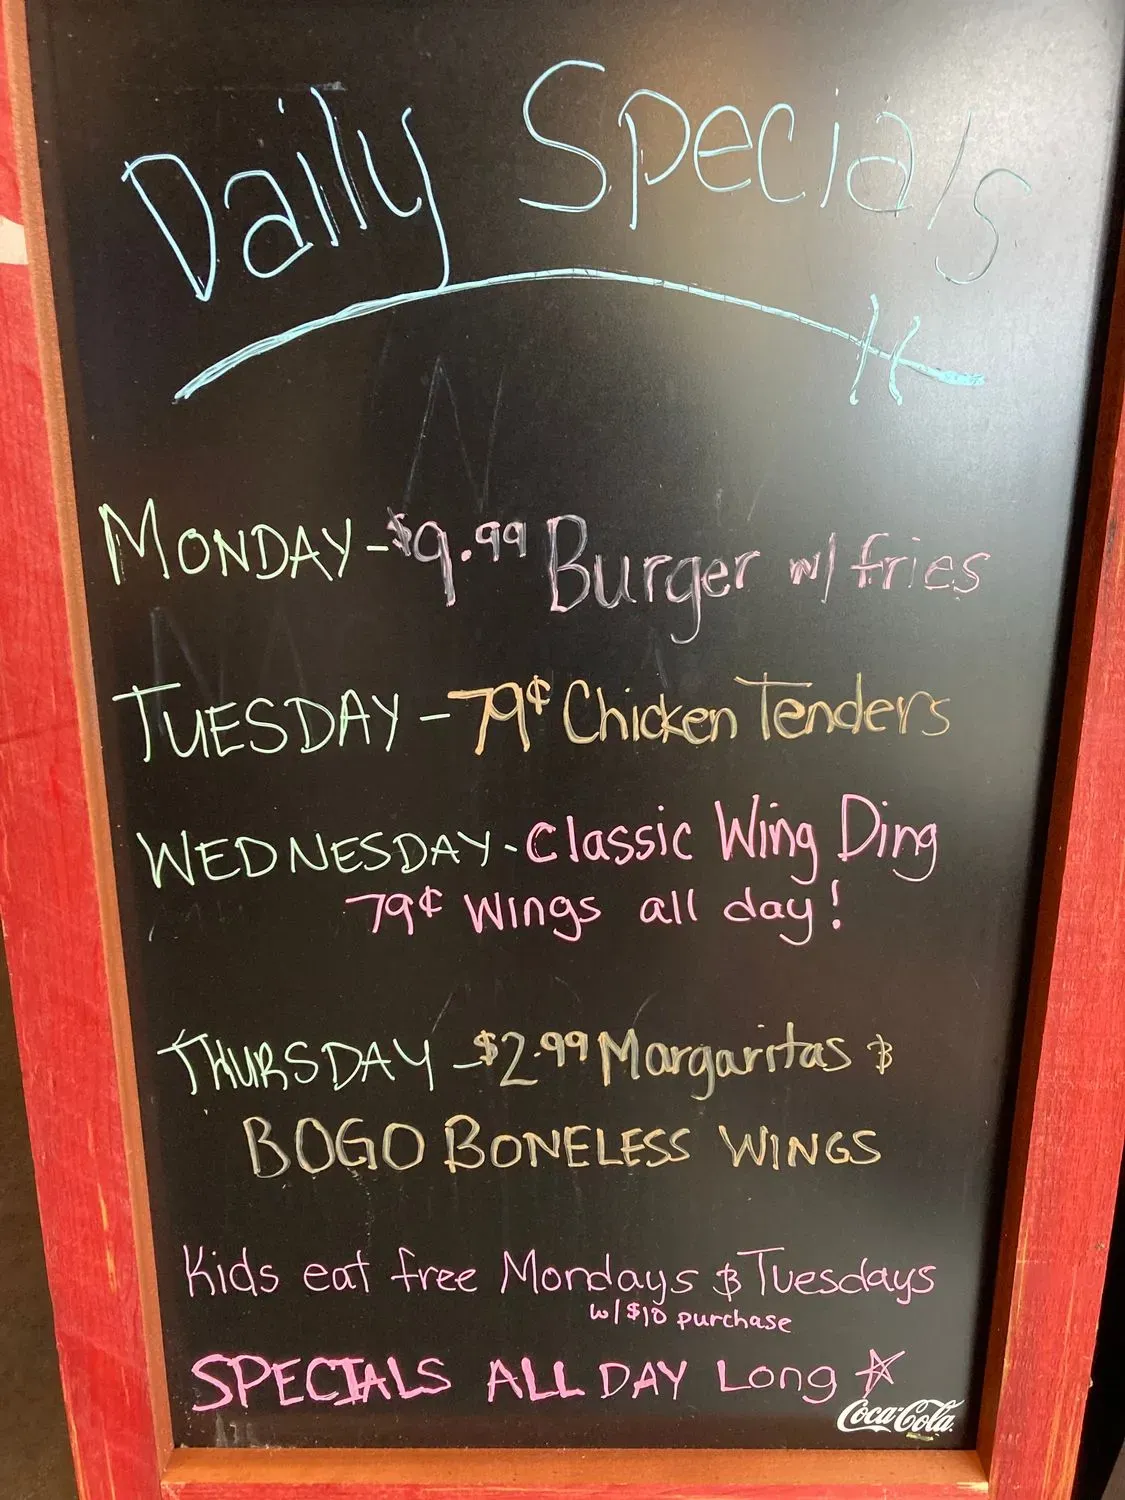 Daily Specials
MONDAY - $9.99 Burger w/ fries
TUESDAY - 79¢ Chicken Tenders
WEDNESDAY - Classic Wing Ding
79¢ Wings all day!
THURSDAY - $2.99 Margaritas &
BOGO BONELESS WINGS
Kids eat free Mondays & Tuesdays
w/ $10 purchase
SPECIALS ALL DAY Long
Coca-Cola